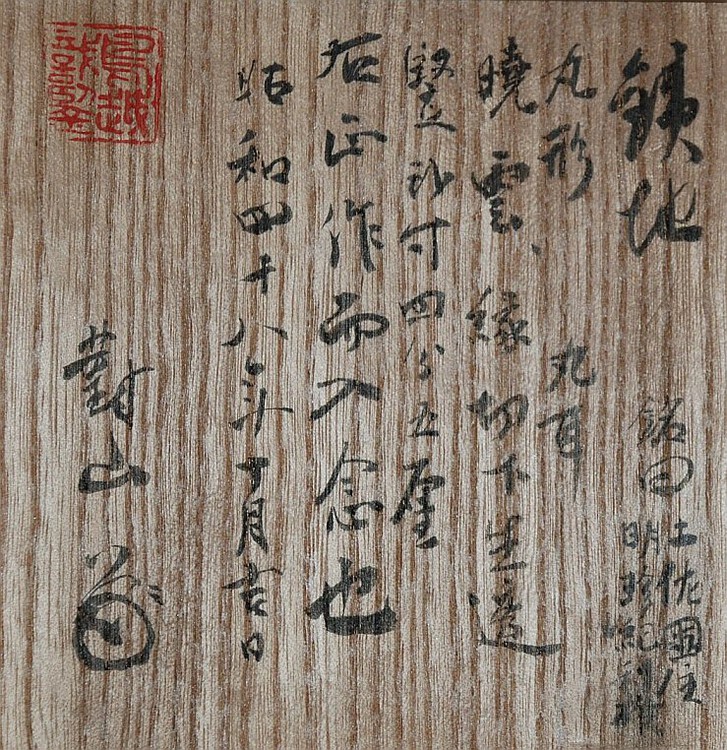 銕地 銘曰 土佐國住
明珍紀
丸形 丸耳
曉雲、縁切下 透
竪弐寸四分五厘
右正作而入念也
昭和四十八年丁月吉日
對山
鳥越